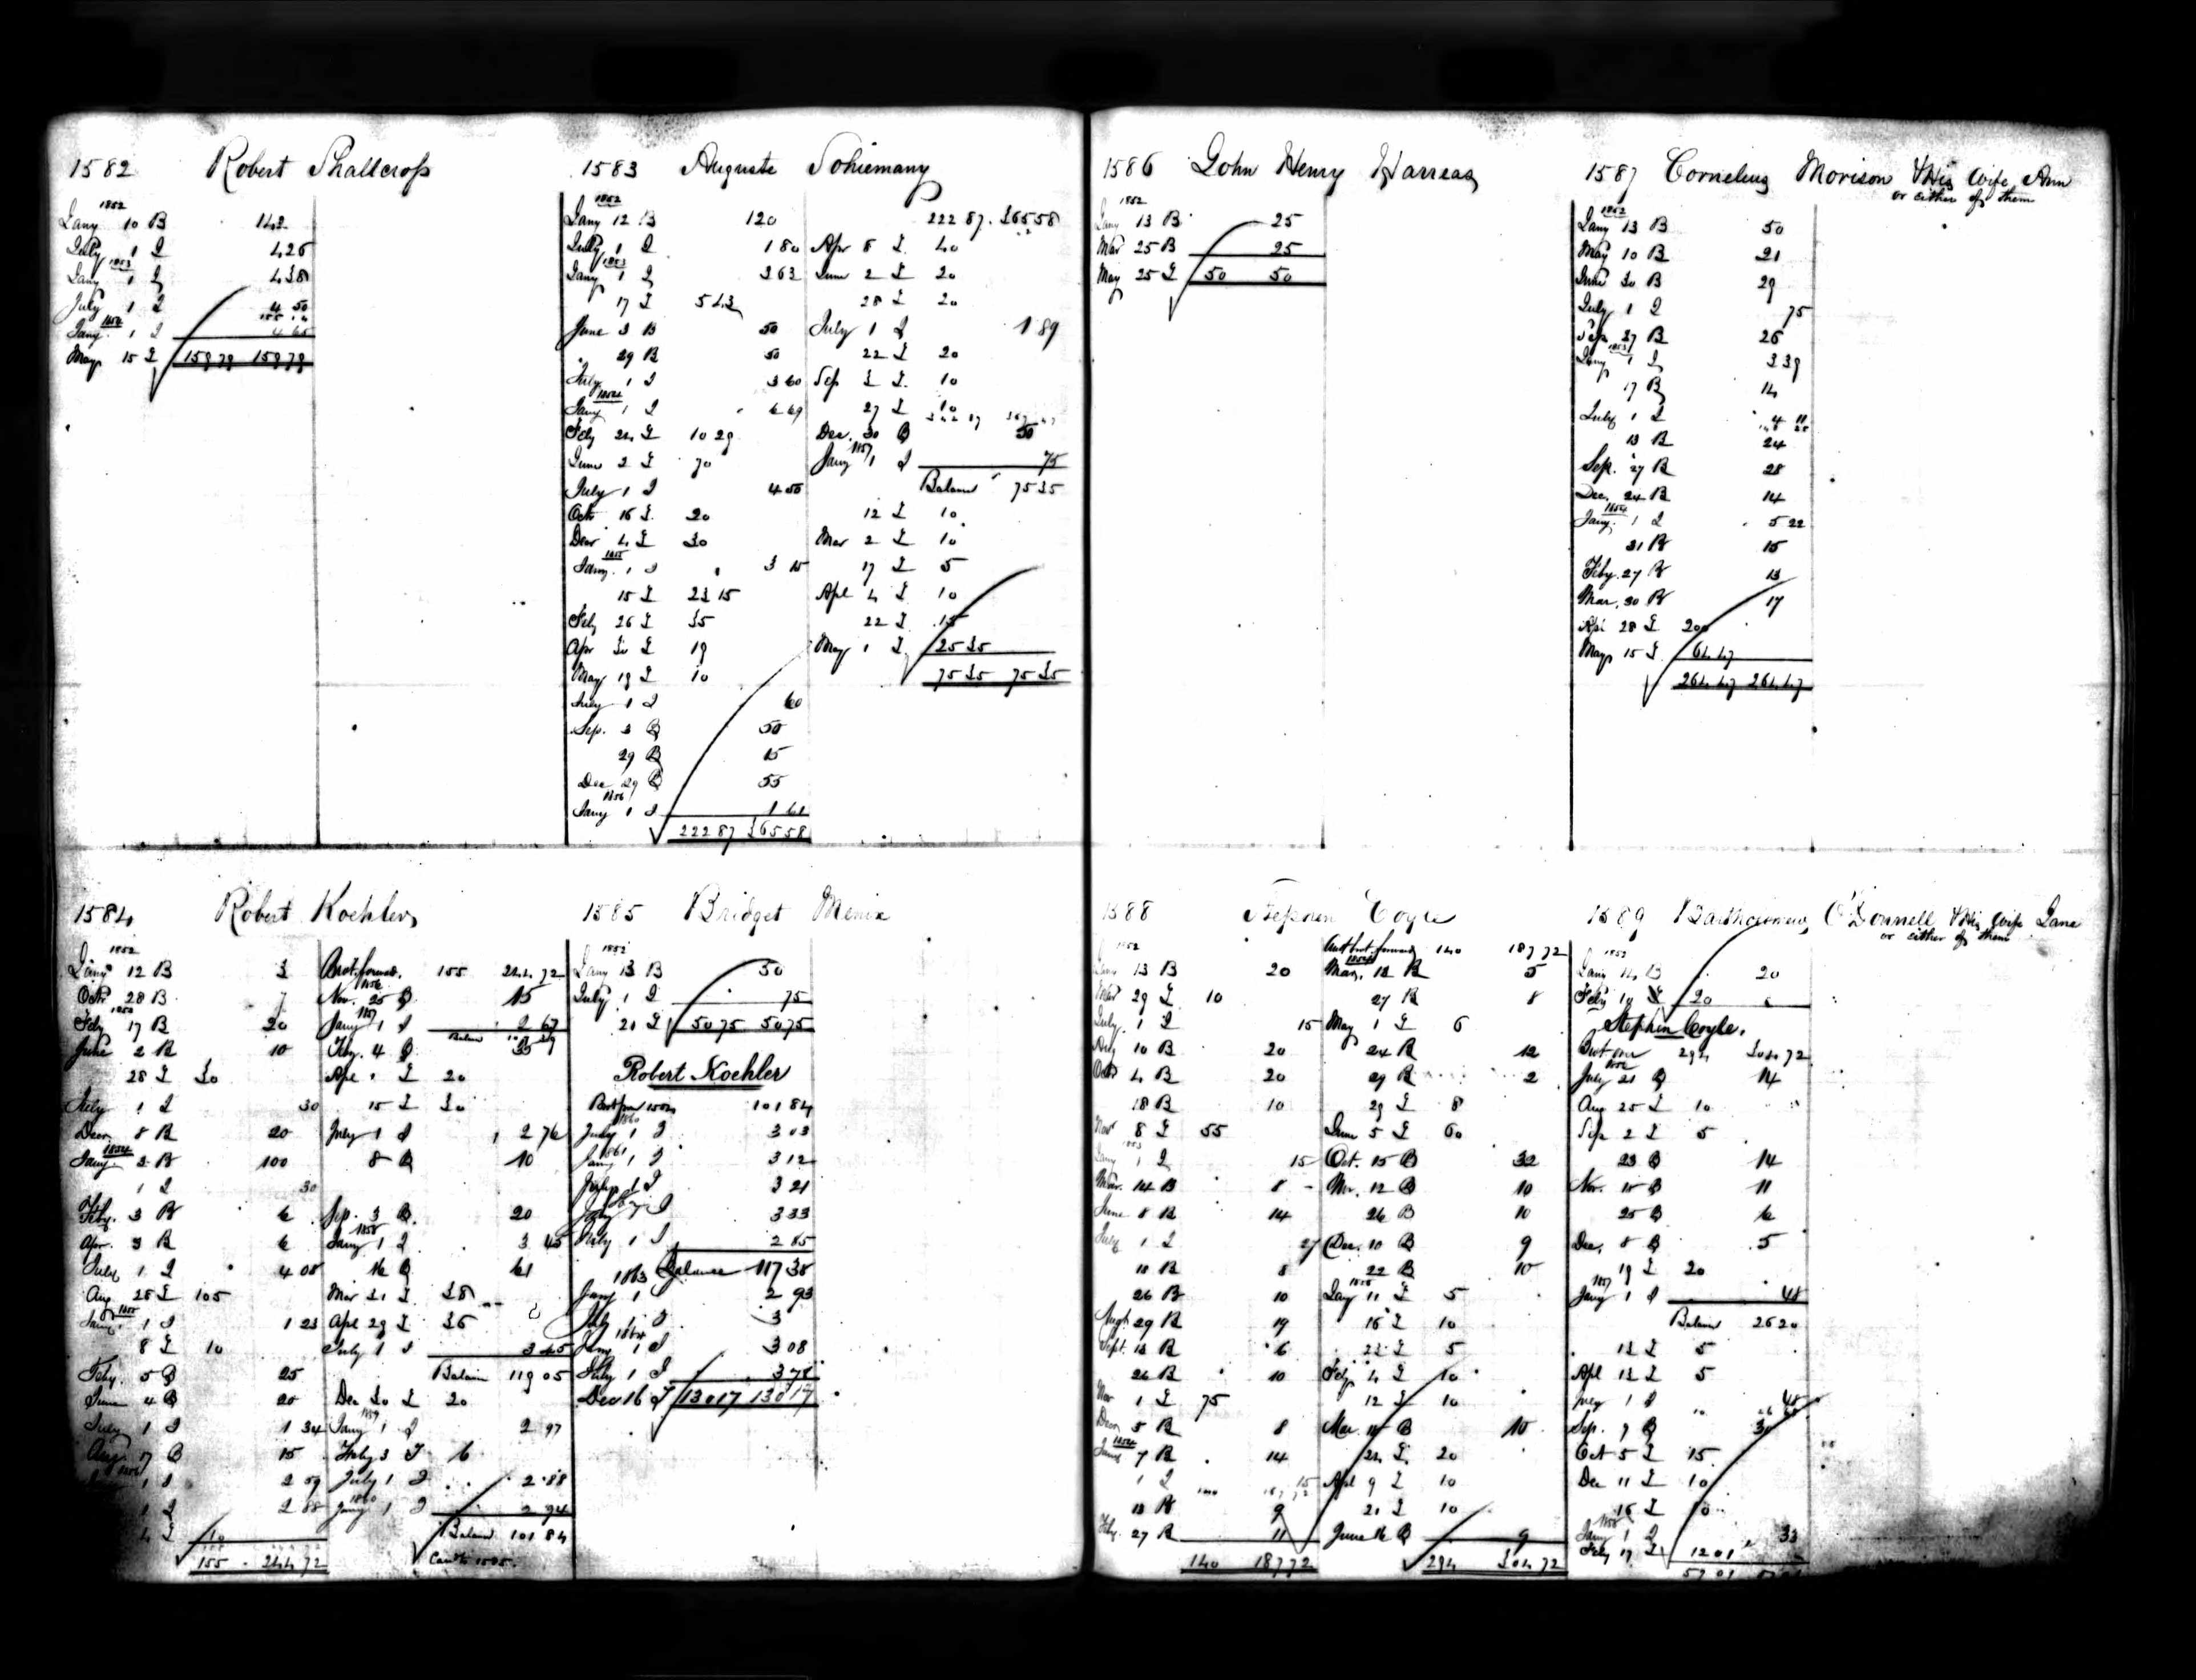 1582 Robert Shallcross
1852
Jany 10 B 142
July 1 I 4 26
1853
Jany 1 I 4 38
July 1 I 4 50
1854
Jany 1 I 4 65
May 15 L 159 79 159 79
1583 Auguste Sohiemany
1852
Jany 12 B 120
July 1 I 1 80
1853
Jany 1 I 3 63
17 L 5 43
June 3 B 50
" 29 B 50
July 1 I 3 60
1854
Jany 1 I 6 69
Feby 24 L 10 29
June 2 L 70
July 1 I 4 50
Octr 16 L 20
Decr 4 L 30
1855
Jany 1 I 3 15
15 L 23 15
Feby 26 L 35
Apr 30 L 19
May 19 L 10
July 1 I 60
Sep. 3 B 50
29 B 15
Dec 29 B 55
1856
Jany 1 I 1 61
222 87 365 58
222 87 365 58
Apr 8 L 40
June 2 L 20
28 L 20
July 1 I 1 89
22 L 20
Sep 3 L 10
27 L 10
Dec. 30 B 50
1857
Jany 1 I 75
Balance 75 35
12 L 10
Mar 2 L 10
17 L 5
Apl 4 L 10
22 L 15
May 1 L 25 35
75 35 75 35
1584 Robert Koehler
1852
Jany 12 B 3
Octr 28 B 7
1853
Feby 17 B 20
June 2 B 10
28 L 30
July 1 I 30
Decr 8 B 20
1854
Jany 3 B 100
1 I 30
Feby. 3 B 6
Apr. 3 B 6
July 1 I 4 08
Aug 28 L 105
1855
Jany 1 I 1 23
8 L 10
Feby. 5 B 25
June 4 B 20
July 1 I 1 34
Aug. 17 B 15
1856
1 I 2 59
1 I 2 88
4 L 10
155 244 72
Brot. forwd. 155 244 72
1856
Nov. 25 B 15
1857
Jany 1 I 2 67
Balance
Feby. 4 B 35
Apl L 20
15 L 30
July 1 I 2 76
8 B 10
Sep. 3 B 20
1858
Jany 1 I 3 45
16 B 61
Mar 31 L 38
Apl 29 L 36
July 1 I 3 45
Balance 119 05
Dec 30 L 20
1859
Jany 1 I 2 97
Feby 3 L 6
July 1 I 2 88
1860
Jany 1 I 2 94
Balance 101 84
1585 Bridget Menix
1852
Jany 13 B 50
July 1 I 75
21 L 50 75 50 75
Robert Koehler
101 84
1860
July 1 I 3 03
1861
Jany 1 I 3 12
July 1 I 3 21
Jany 1 I 3 33
July 1 I 2 85
Balance 117 38
1863
Jany 1 I 2 93
July 1 I 3
1864
Jany 1 I 3 08
July 1 I 3 78
Dec 16 L 130 17 130 17
1586 John Henry Harreas
1852
Jany 13 B 25
Mar 25 B 25
May 25 L 50 50
1587 Cornelius Morison & His Wife Ann
or either of them
1852
Jany 13 B 50
May 10 B 21
June 30 B 29
July 1 I 75
Sep. 27 B 26
1853
Jany 1 I 3 39
17 B 14
July 1 I 4 11
13 B 24
Sep. 27 B 28
Dec. 24 B 14
1854
Jany. 1 I 5 22
21 B 15
Feby. 27 B 13
Mar. 30 B 17
Apl 28 L 200
May 15 L 64 47
264 47 264 47
1588 Stephen Coyle
1852
Jany 13 B 20
Mar 29 L 10
July 1 I 15
Aug 10 B 20
Octr 4 B 20
18 B 10
Nov 8 L 55
1853
Jany 1 I 15
Mar. 14 B 8
June 8 B 14
July 1 I 27
10 B 8
26 B 10
Augt 29 B 19
Sept. 13 B 6
26 B 10
Nov 1 L 75
Decr 5 B 8
1854
Jany 7 B 14
1 I 15
13 B 9
Feby. 27 B 11
140 187 72
Amt brot. forward 140 187 72
1854
Mar. 13 B 5
27 B 8
May 1 L 6
24 B 12
29 B 2
29 L 8
June 5 L 60
Oct. 15 B 32
Nov. 12 B 10
26 B 10
Dec. 10 B 9
22 B 10
1855
Jany 11 L 5
16 L 10
23 L 5
Feby 4 L 10
12 L 10
Mar. 11 B 10
24 L 20
Apl 9 L 10
21 L 10
June 16 B 9
294 304 72
1589 Bartholomew O'Donnell & His Wife Jane
or either of them
1852
Jany 14 B 20
Feby 10 L 20
Stephen Coyle.
Brot over 294 304 72
July 21 B 14
Aug 25 L 10
Sep 2 L 5
23 B 14
Nov. 15 B 11
25 B 6
Dec. 8 B 5
19 L 20
1857
Jany 1 I 48
Balance 26 20
13 L 5
Apl 13 L 5
July 1 I 48
Sep. 9 B 30
Oct 5 L 15
Dec 11 L 10
16 L 10
1858
Jany 1 I 33
Feby 17 L 12 01